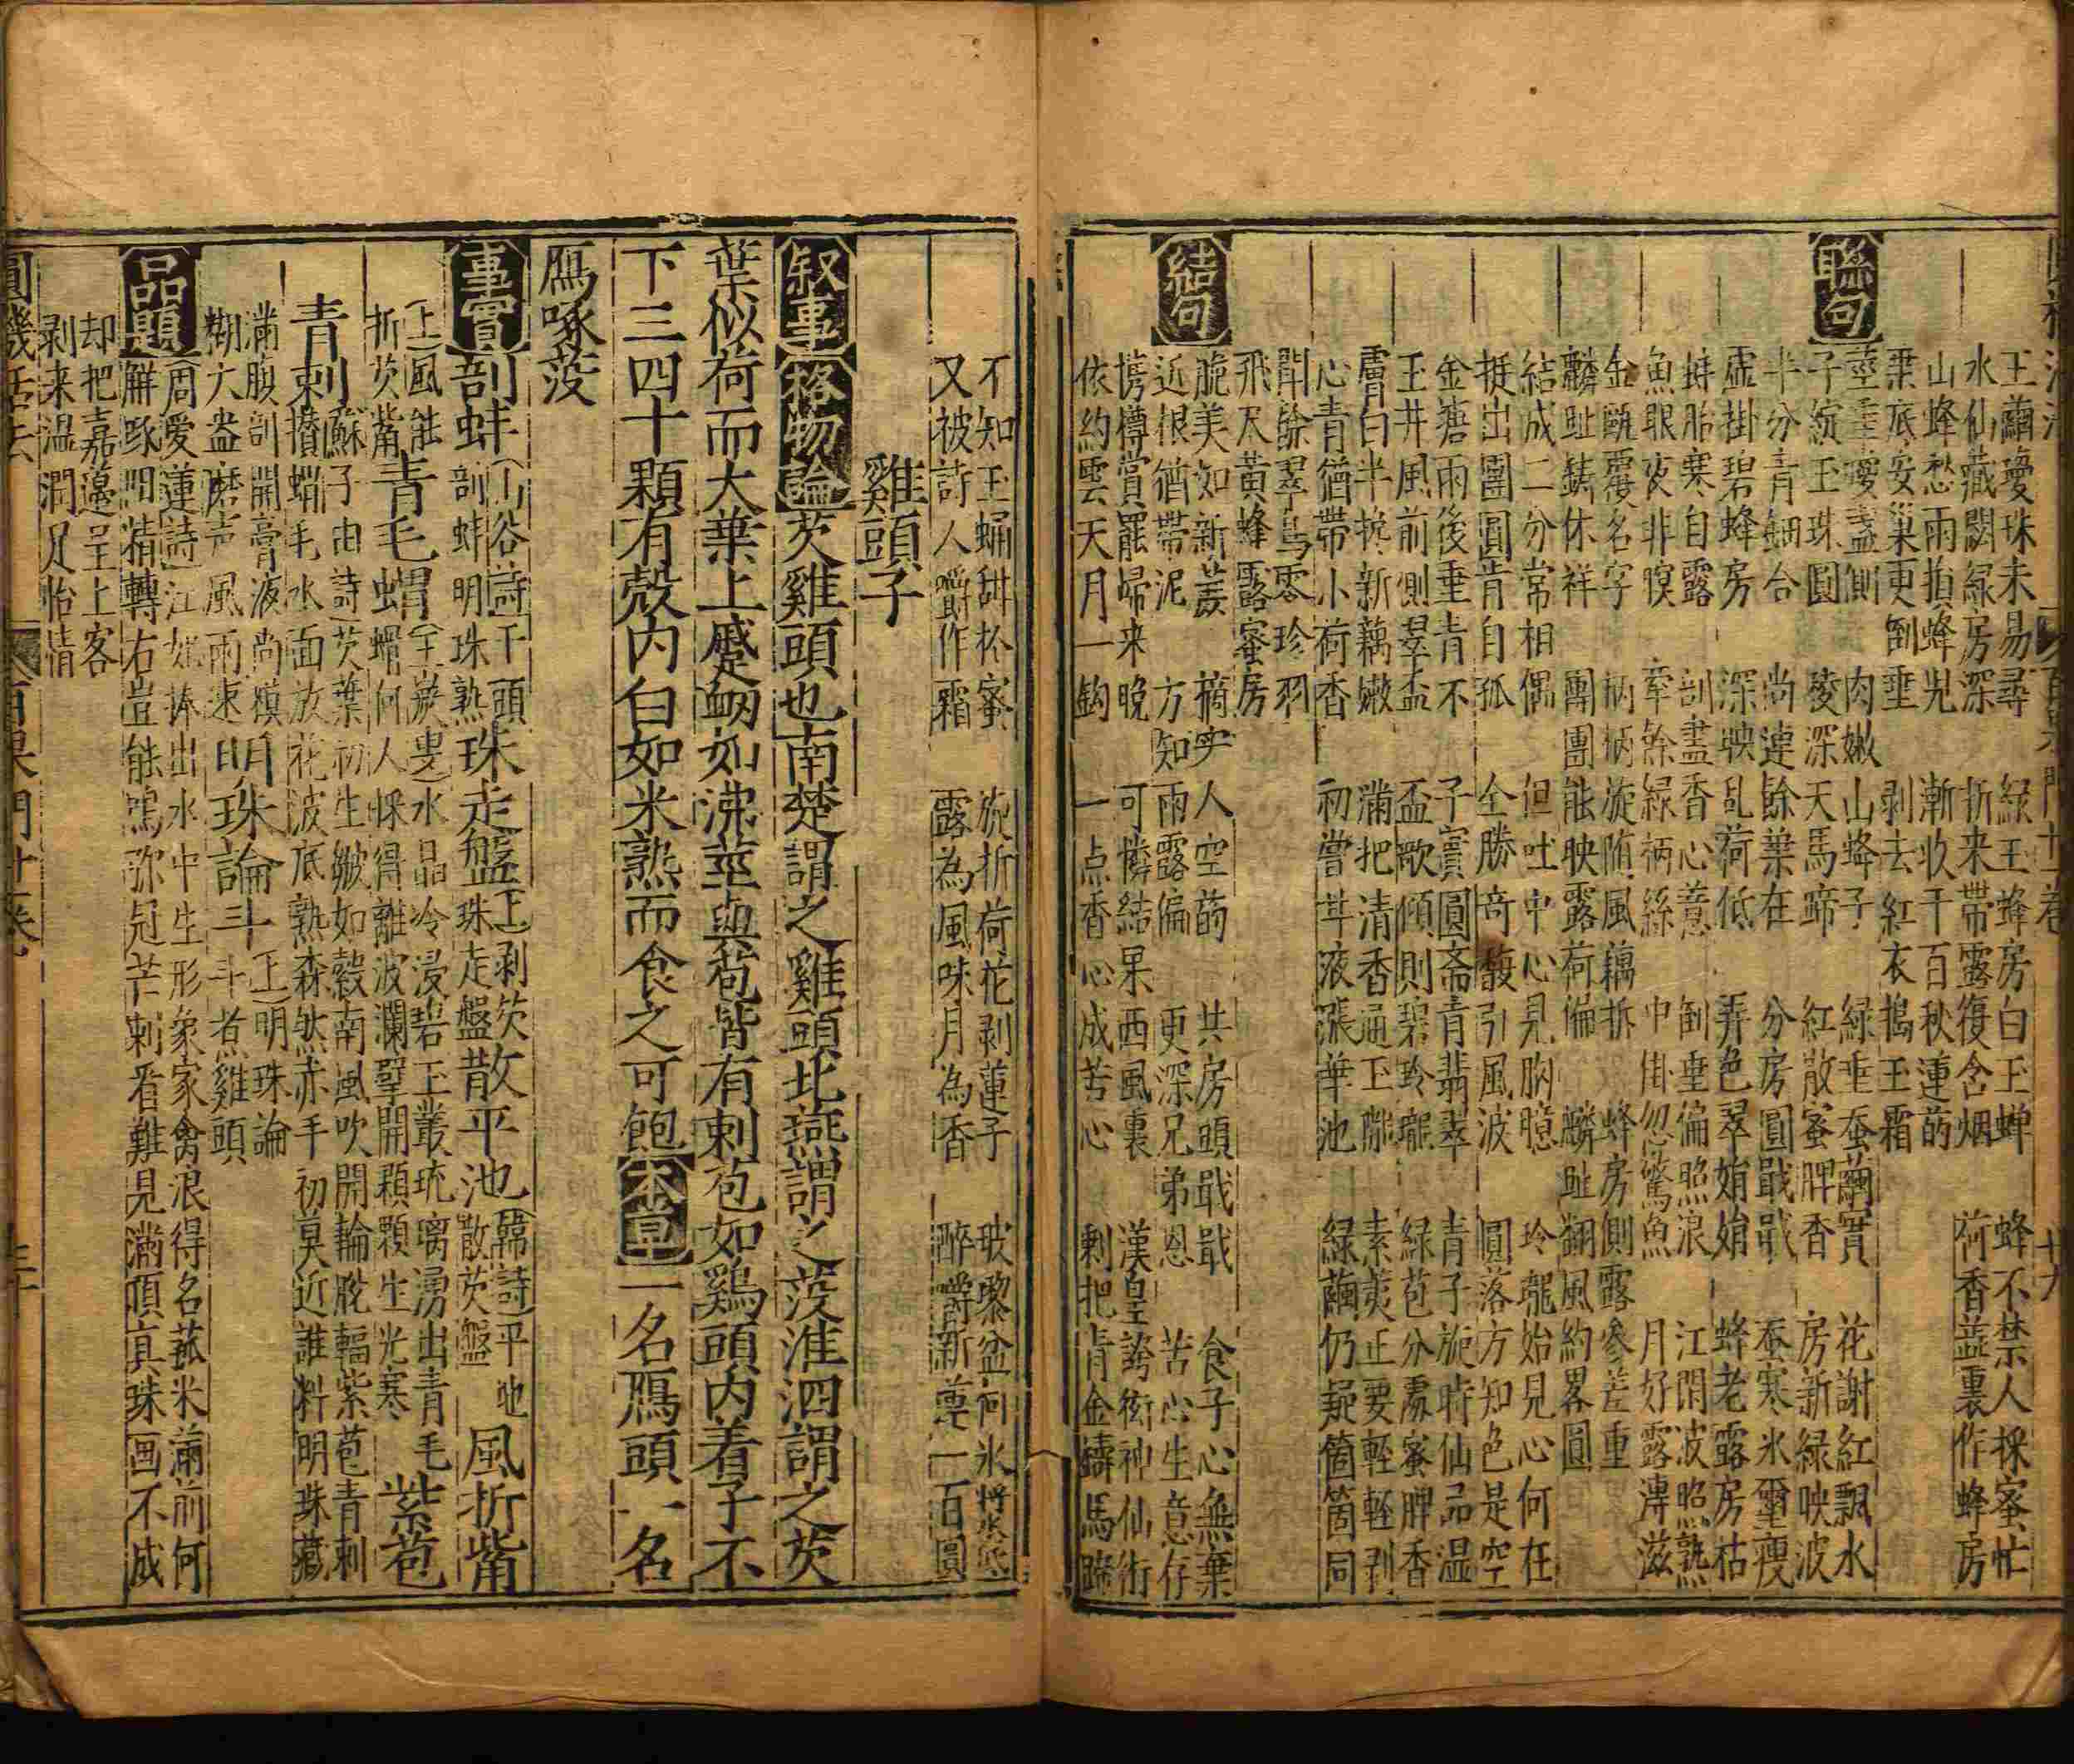 玉繭瓊珠未易尋 綠玉蜂房白玉蟬 蜂不禁人採蜜忙
水仙藏閟綠房深 折来帶露復含烟 荷香蕋裏作蜂房
山蜂愁雨損蜂児 漸收千百秋蓮菂
葉底安巢更倒垂 剥去紅衣搗玉霜
聯句
莖垂瓊盞側 肉嫩山蜂子 綠垂蚕繭實 花謝紅飄水
子綻玉珠圓 稜深天馬蹄 紅散蜜脾香 房新綠映波
半分青鈿合 尚連餘葉在 分房圓戢戢 蚕寒氷蠒瘦
虛掛碧蜂房 深映乱荷低 弄色翠娟娟 蜂老露房枯
蚌胎寒自露 剖盡香心薏 倒垂偏照浪 江閒波照熟
魚眼夜非暝 牽餘綠柄絲 中掛忽驚魚 月好露漙滋
金甌覆名字 柄柄旋随風藕折 蜂房側露參差重
麟趾鑄休祥 團團能映露荷偏 麟趾翻風約畧圓
結成二分常相偶 但吐中心見胸臆 玲瓏始見心何在
挺出團圓肯自孤 全勝奇馥引風波 圓落方知色是空
金塘雨後垂青不 子實圓斋青翡翠 青子旎時仙品温
玉井風前側翠盃 盃歌傾則碧玲瓏 綠苞分處蜜脾香
膚白半搀新藕嫩 滿把清香通玉腕 素荑正要輕輕剥
心青猶帶小荷香 初嘗甘液漲華池 綠繭仍疑箇箇同
闘餘翠鳥零珍羽
飛尽黄蜂露蜜房
結句
脆美如新菱 摘実人空菂 共房頭戢戢 食子心無棄
近根猶帶泥 方知雨露偏 更深兄弟恩 苦心生意存
携樽賞罷帰来晚 可憐結果西風裏 漢皇誇衒神仙術
依約雲天月一鈎 一点香心成苦心 剰把青金鑄馬蹄
不知玉蛹甜於蜜 旋折荷花剥蓮子 玻瓈盆向氷将底
又被詩人嚼作霜 露為風味月為香 醉嚼新蓮一百圓
雞頭子
叙事 格物論 芡雞頭也南楚謂之雞頭北燕謂之䓈淮泗謂之芡
葉似荷而大葉上蹙衂如沸莖與苞皆有刺苞如鷄頭内着子不
下三四十顆有殼内白如米熟而食之可飽 本草 一名鴈頭一名
鴈啄䓈
事實 剖蚌 山谷詩 千頭剖蚌明珠熟 珠走盤 上 剥芡珠走盤 散平池 韓詩 平池散芡盤 風折觜
上 風能折芡觜 青毛蝟 全嵗叟 水晶冷浸碧玉叢琉璃湧出青毛蝟何人採得離波瀾擘開顆顆生光寒 紫苞
青刺 蘇子由詩 芡葉初生皺如縠南風吹開輪脫輻紫苞青刺攅蝟毛水面放花波底熟森然赤手初莫近誰料明珠藏
滿腹剖開膏液尚糢糊大盎磨声風雨速 明珠論斗 上 明珠論斗斗煮雞頭
品題 周愛蓮詩 江妃捧出水中生形象家禽浪得名菰米滿前何
觧啄明精轉右豈能鳴弥冠芒刺看難見滿頂真珠画不成
却把嘉籩呈上客
剥来温潤足怡情